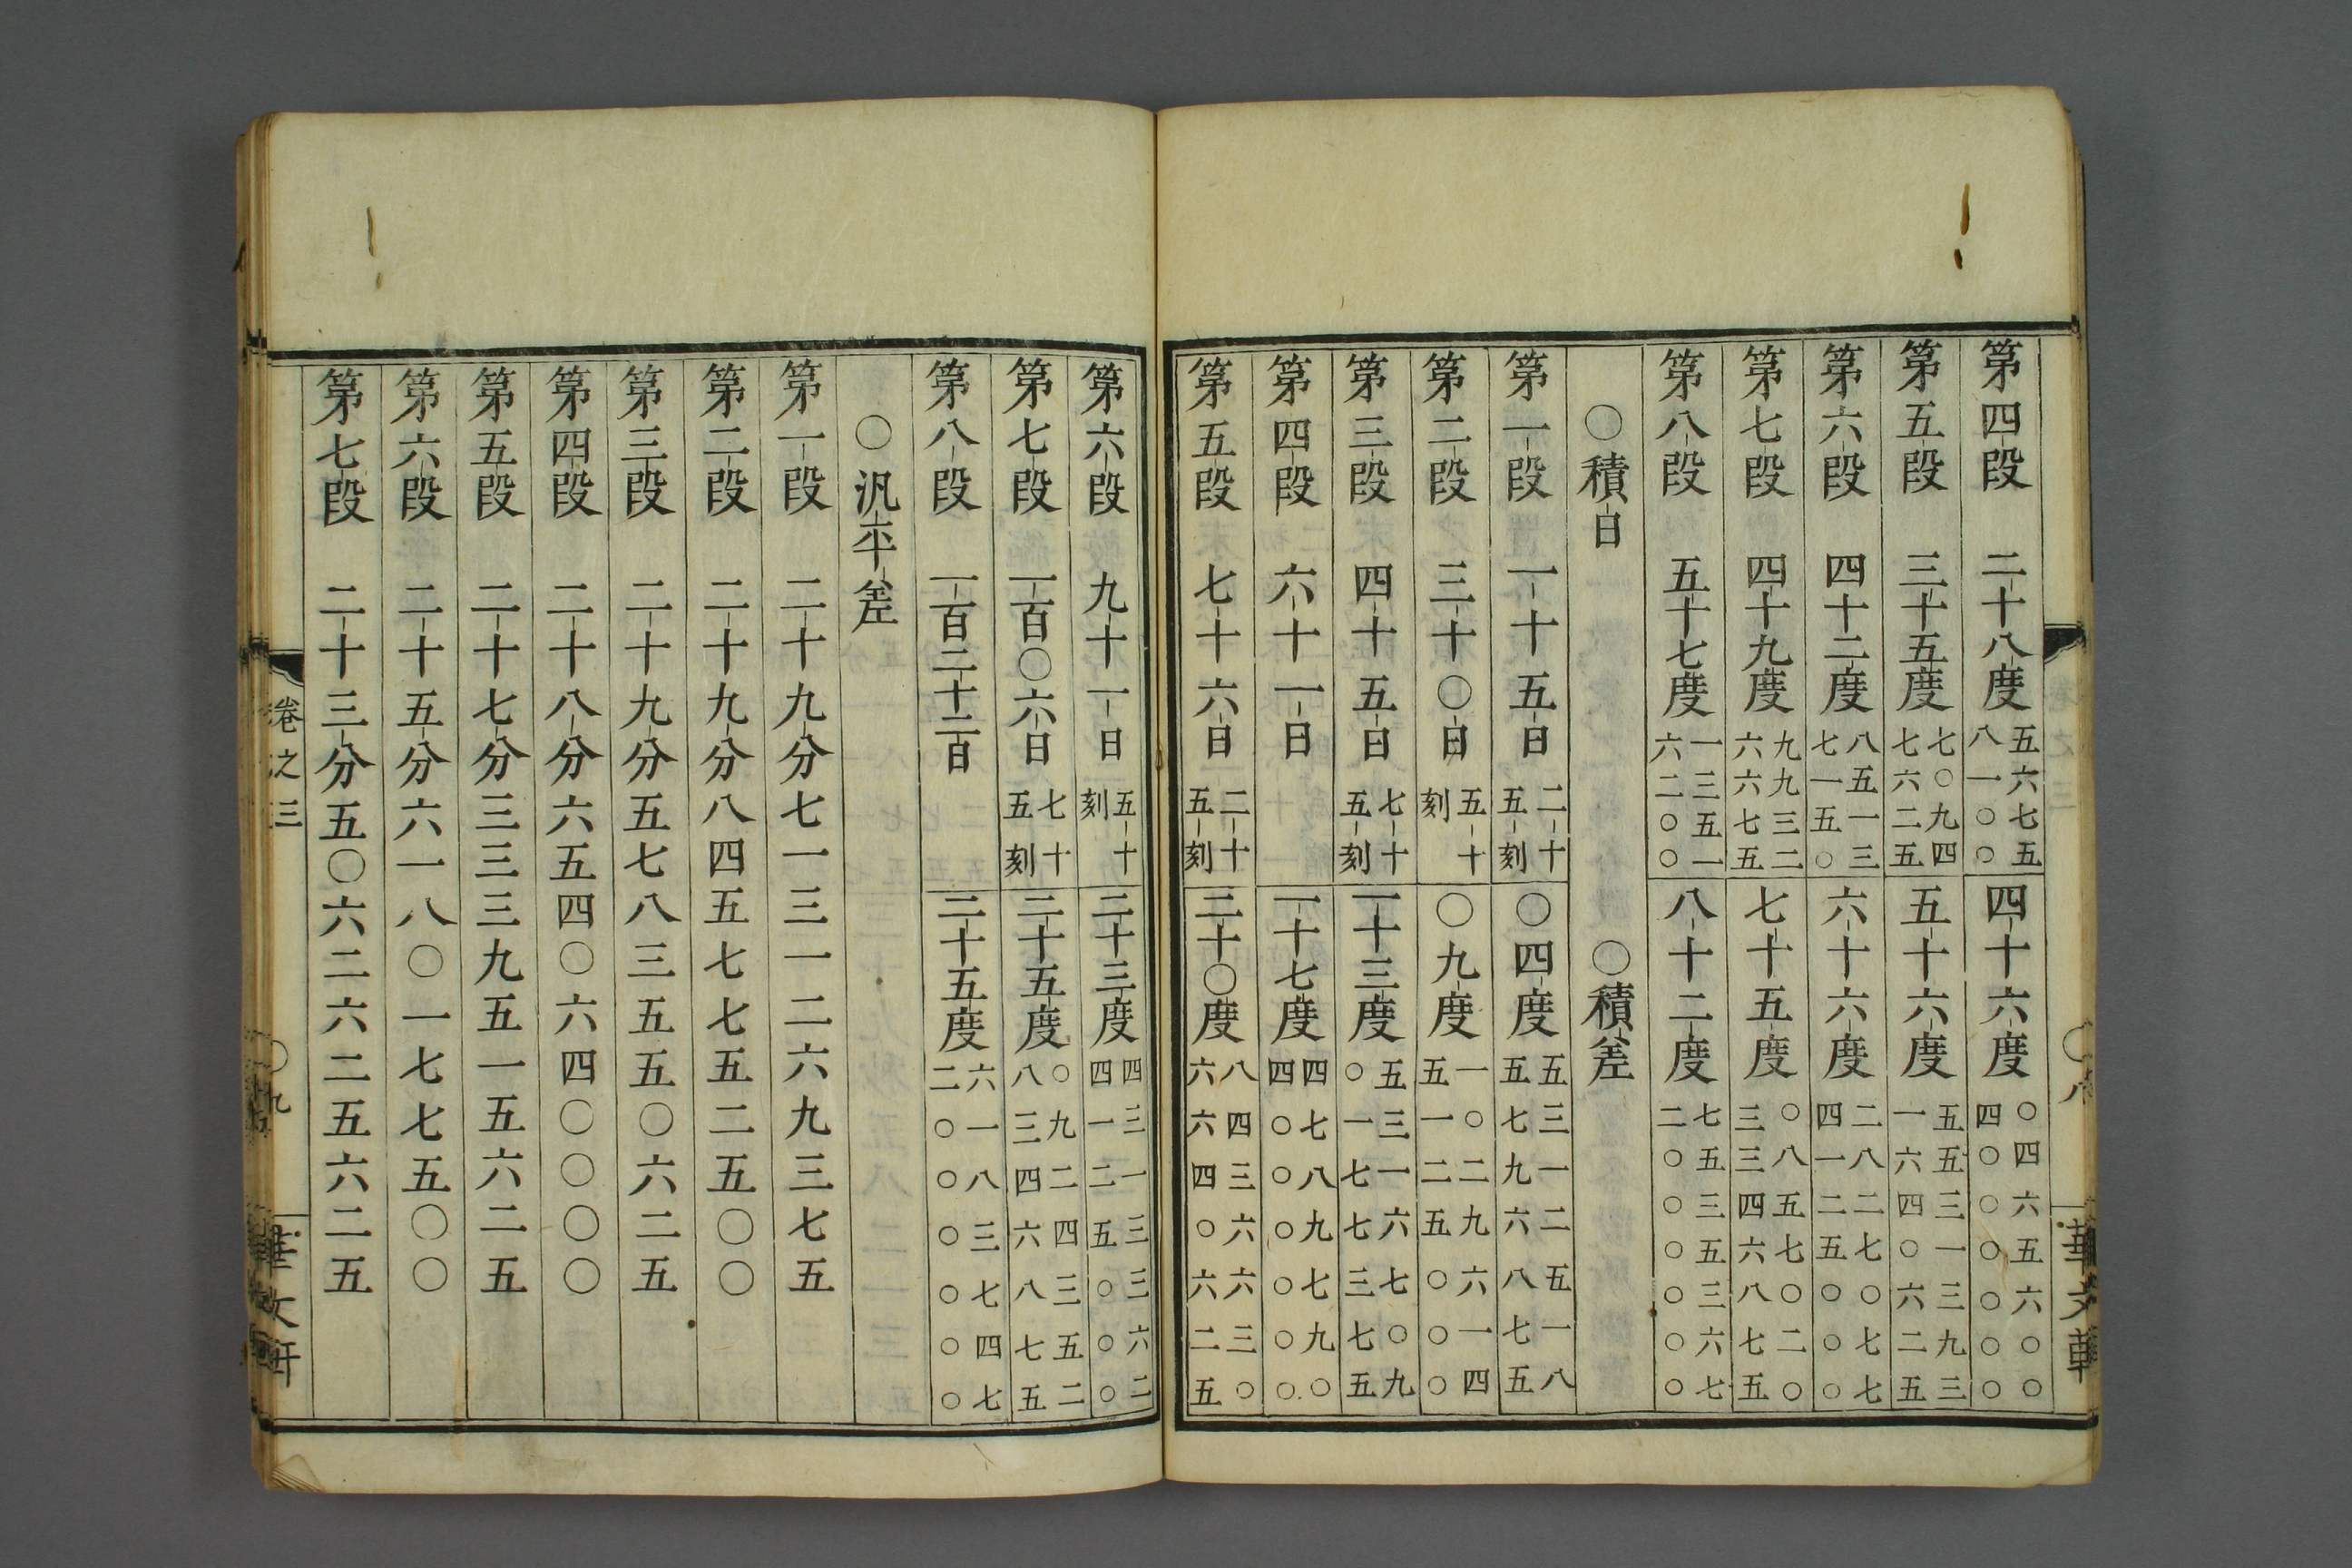 第四段 二十八度五六七五八一〇〇 四十六度〇四六五六〇〇四〇〇〇〇〇〇
第五段 三十五度七〇九四七六二五 五十六度五五三一三九三一六四〇六二五
第六段 四十二度八五一三七一五〇 六十六度二八二七〇七七四一二五〇〇〇
第七段 四十九度九九三二六六七五 七十五度〇八五七〇二〇三三四六八七五
第八段 五十七度一三五一六二〇〇 八十二度七五三五三六七二〇〇〇〇〇〇
〇積日 〇積差
第一段 一十五日二十五刻 〇四度五三一二五一八五七九六八七五
第二段 三十〇日五十刻 〇九度一〇二九六一四五一二五〇〇〇
第三段 四十五日七十五刻 一十三度五三一六七〇九〇一七七三七五
第四段 六十一日 一十七度四七八九七九〇四〇〇〇〇〇〇
第五段 七十六日二十五刻 二十〇度八四三六六三〇六六四〇六二五
第六段 九十一日五十刻 二十三度四三一三三六二四一二五〇〇〇
第七段 一百〇六日七十五刻 二十五度〇九二四三五二八三四六八七五
第八段 一百二十二日 二十五度六一八三七四七二〇〇〇〇〇〇
〇汎平差
第一段 二十九分七一三一二六九三七五
第二段 二十九分八四五七七五二五〇〇
第三段 二十九分五七八三五五〇六二五
第四段 二十八分六五四〇六四〇〇〇〇
第五段 二十七分三三三九五一五六二五
第六段 二十五分六一八〇一七七五〇〇
第七段 二十三分五〇六二六二五六二五
卷之三